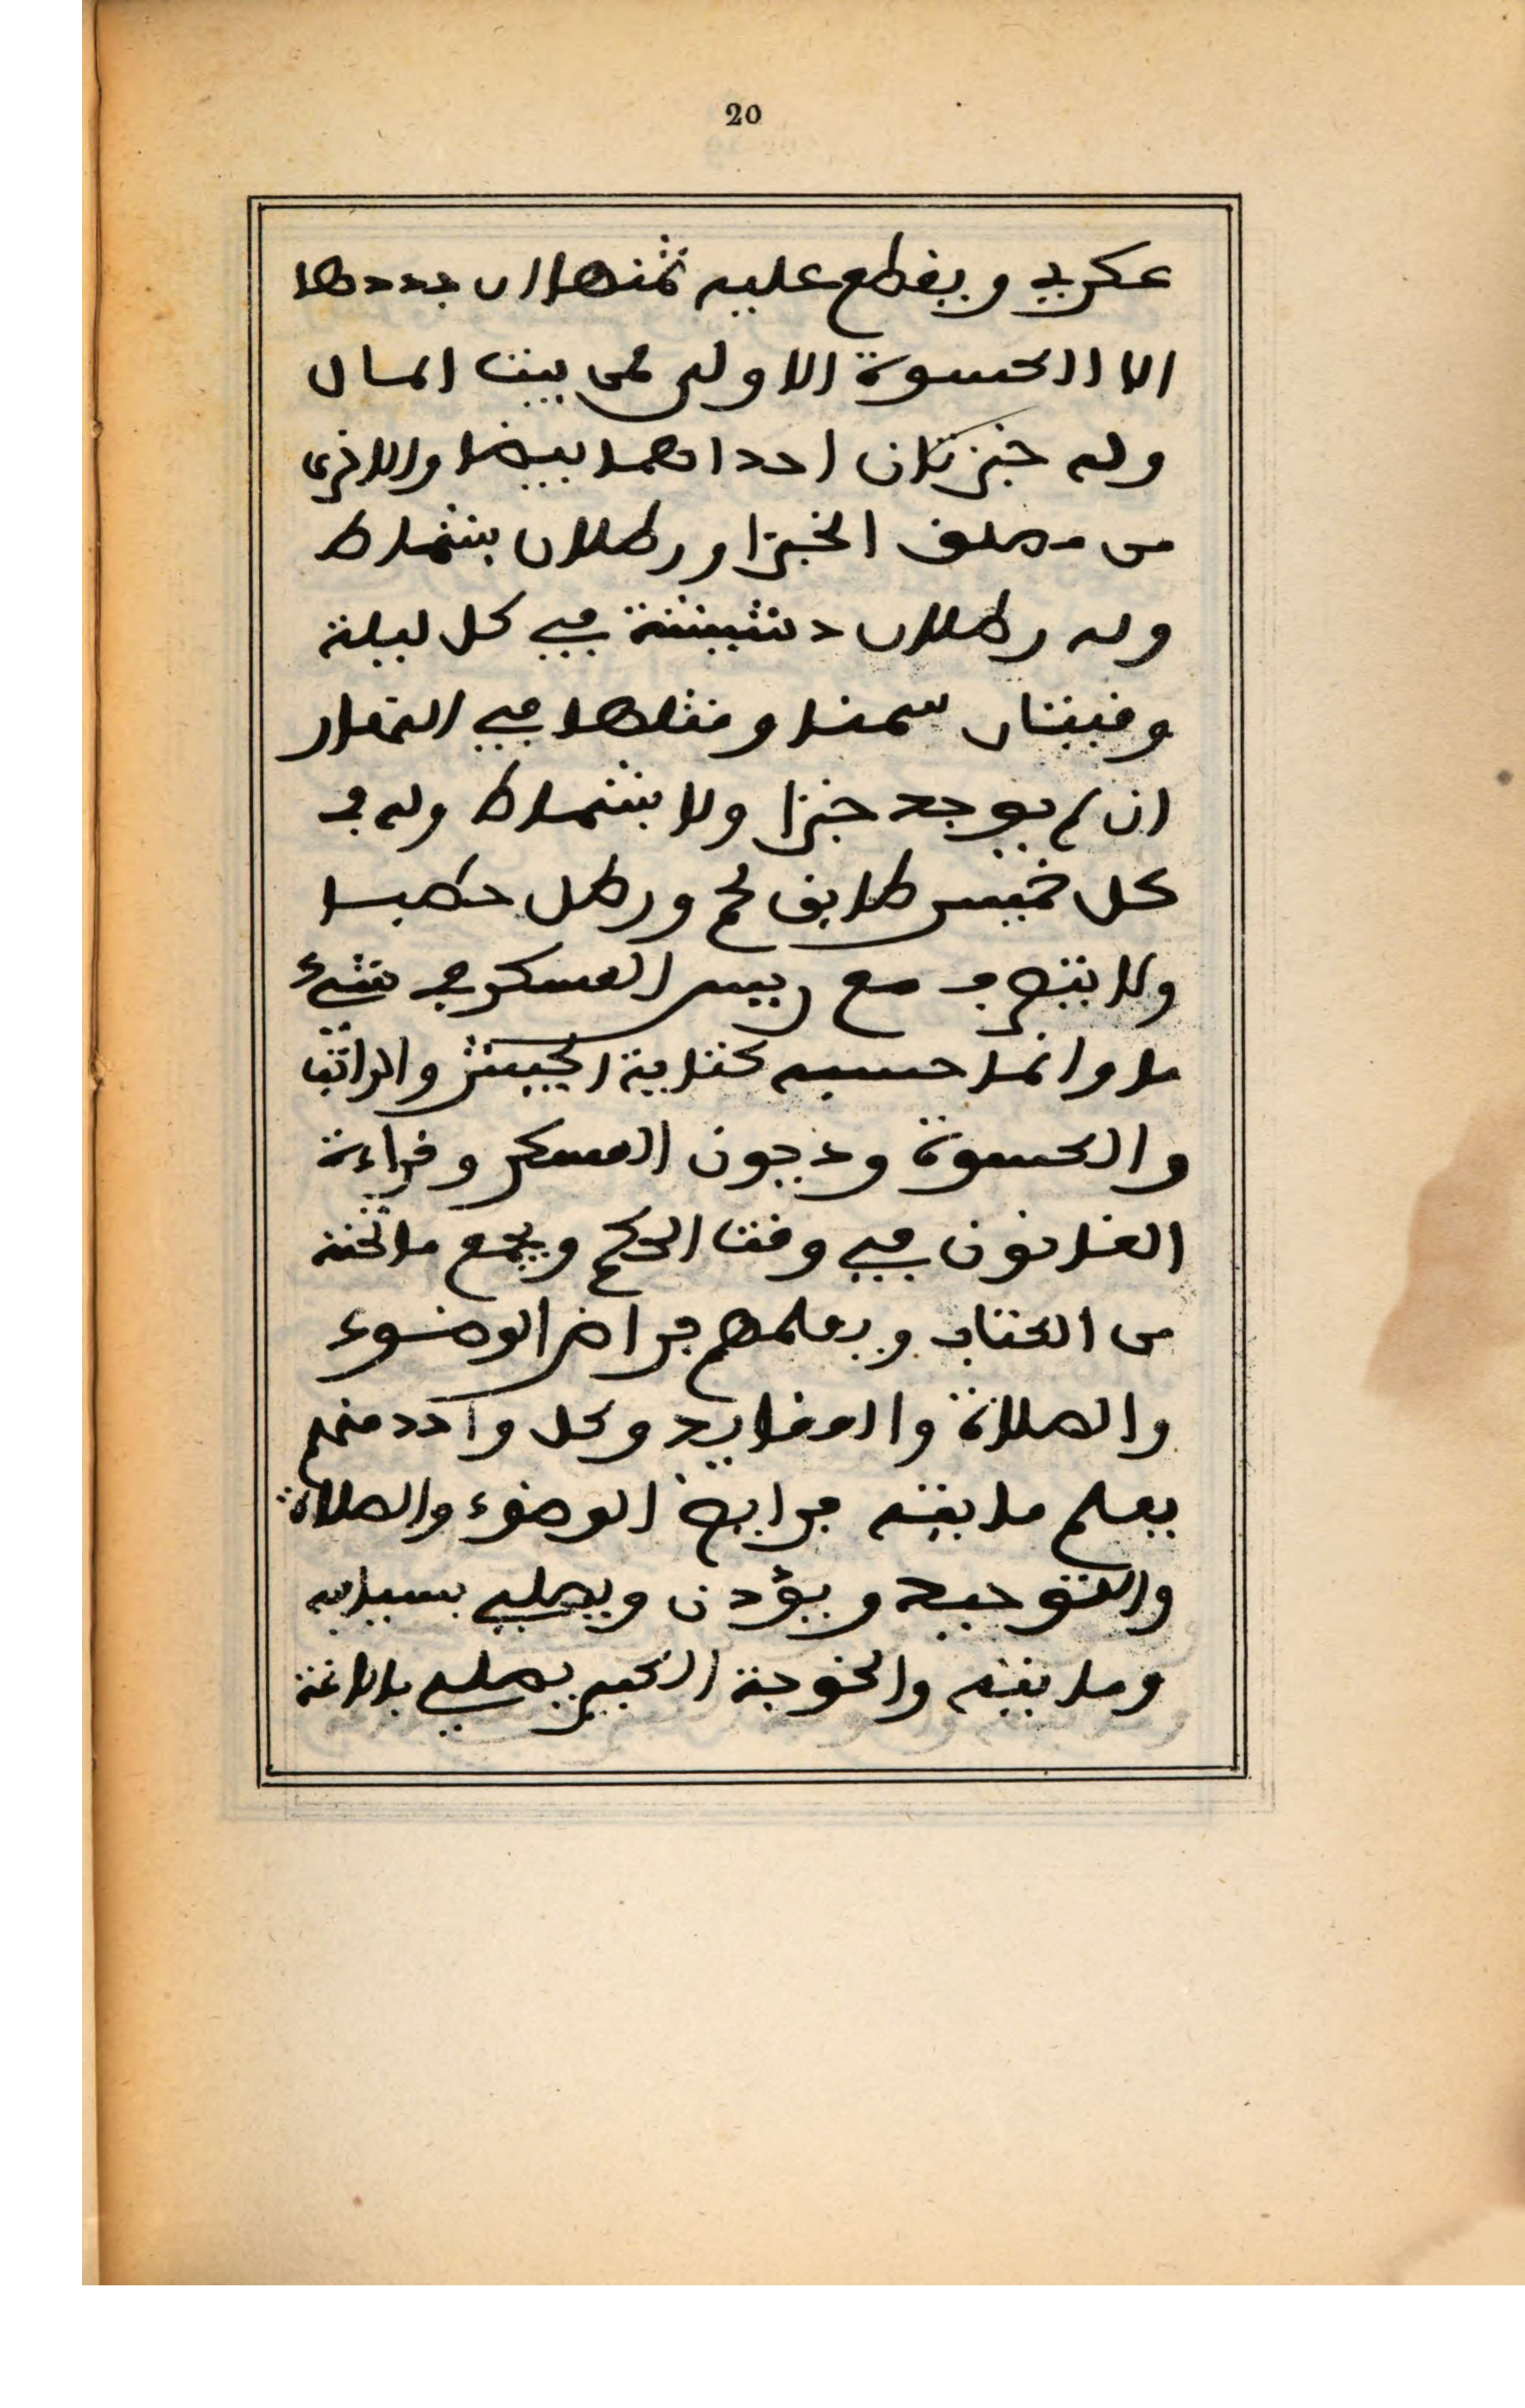 20
عكري ويقطع عليه ثمنها ان جددها
الا الكسوة الاولى فمن بيت المال
وله خبزتان احداهما بيضا والاخرى
من مطلق الخبز او رطلان بشماط
وله رطلان دشيشة في كل ليلة
وقيتان سمنا ومثلها في النهار
ان لم يوجد خبزا ولا بشماط وله في
كل خميس طابق لحم ورطل حطبا
ولا يتصرف مع رييس العسكر في شيء
ما وانما حسبه كتابة الجيش والراتب
والكسوة وديون العسكر وقراءة
القانون في وقت الحكم ويجمع ما تحته
من الكتاب ويعلمهم فراض الوضوء
والصلاة والعقايد وكل واحد منهم
يعلم مايته فرايض الوضوء والصلاة
والتوحيد ويؤدن ويصلي بسيافه
ومايته والخوجة الكبير يصلي بالاغة